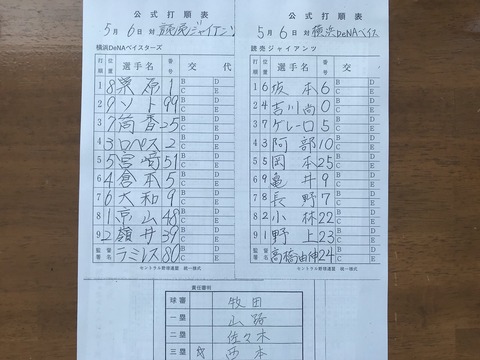 公式打順表
5月6日対 読売ジャイアンツ
横浜DeNAベイスターズ
打順 位置 選手名 番号 交代
1 8 桑原 1 B D
C E
2 9 ソト 99 B D
C E
3 7 筒香 25 B D
C E
4 3 ロペス 2 B D
C E
5 5 宮﨑 51 B D
C E
6 4 倉本 5 B D
C E
7 6 大和 9 B D
C E
8 1 京山 48 B D
C E
9 2 嶺井 39 B D
C E
監督署名 ラミレス 80 B D
C E
セントラル野球連盟 統一様式
公式打順表
5月6日対 横浜DeNAベイス
読売ジャイアンツ
打順 位置 選手名 番号 交代
1 6 坂本 6 B D
C E
2 4 吉川尚 0 B D
C E
3 7 ゲレーロ 5 B D
C E
4 3 阿部 10 B D
C E
5 5 岡本 25 B D
C E
6 9 亀井 9 B D
C E
7 8 長野 7 B D
C E
8 2 小林 22 B D
C E
9 1 野上 23 B D
C E
監督署名 高橋由伸 24 B D
C E
セントラル野球連盟 統一様式
責任審判
球審 牧田
一塁 山路
二塁 佐々木
三塁 西本